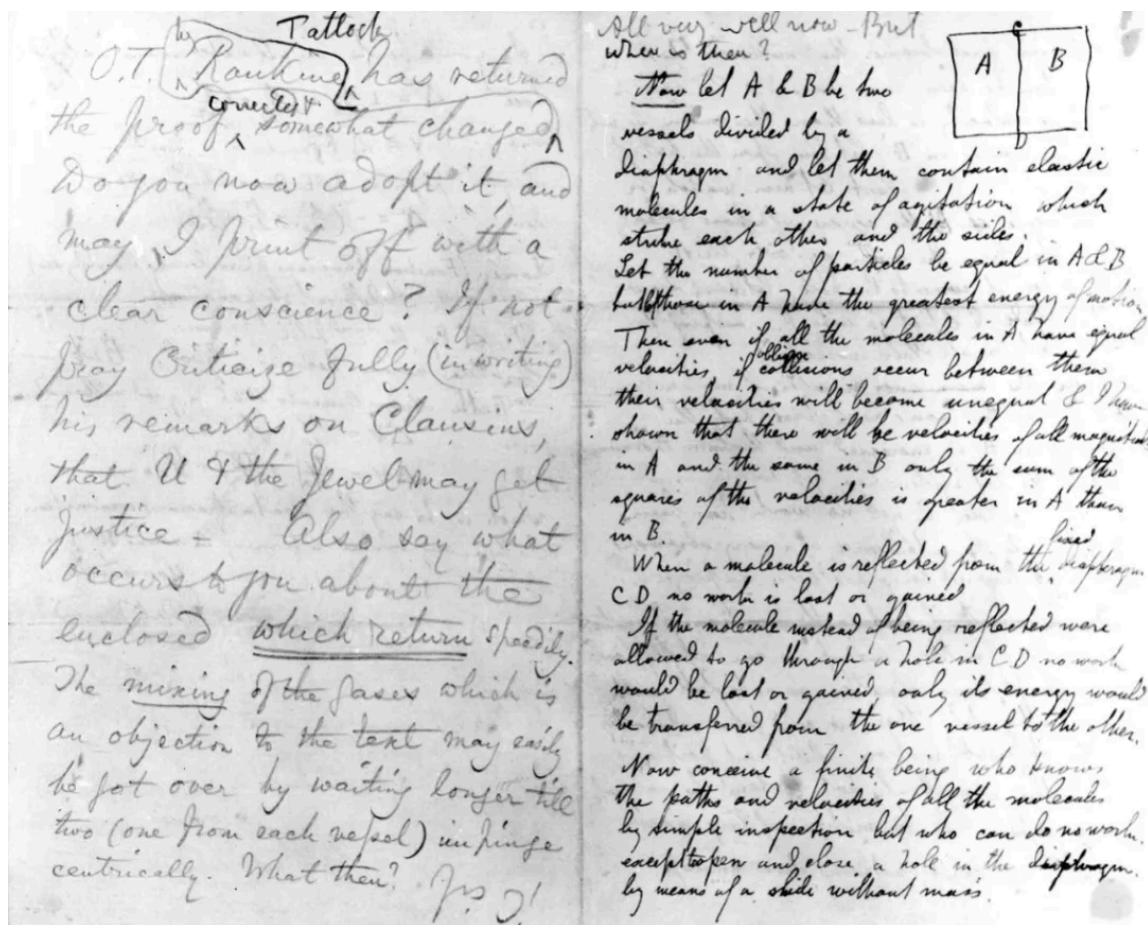 by Tatlock
O.T. Rankine has returned
corrected &
the proof somewhat changed
Do you now adopt it, and
may I print off with a
clear conscience? If not
pray criticize fully (in writing)
his remarks on Clausius,
that U & the Jewel may get
justice - Also say what
occurs to you about the
enclosed which return speedily.
The mixing of the gases which is
an objection to the text may easily
be got over by waiting longer till
two (one from each vessel) impinge
centrically. What then?
All very well now - But
where is then?
A B
C
D
Now let A & B be two
vessels divided by a
diaphragm and let them contain elastic
molecules in a state of agitation which
strike each other and the sides.
Let the number of particles be equal in A & B
but those in A have the greatest energy of motion
Then even if all the molecules in A have equal
velocities, if collisions occur between them
their velocities will become unequal & I have
shown that there will be velocities of all magnitudes
in A and the same in B only the sum of the
squares of the velocities is greater in A than
in B.
When a molecule is reflected from the fixed diaphragm
CD no work is lost or gained
If the molecule instead of being reflected were
allowed to go through a hole in CD no work
would be lost or gained, only its energy would
be transferred from the one vessel to the other.
Now conceive a finite being who knows
the paths and velocities of all the molecules
by simple inspection but who can do no work
except open and close a hole in the diaphragm
by means of a slide without mass.